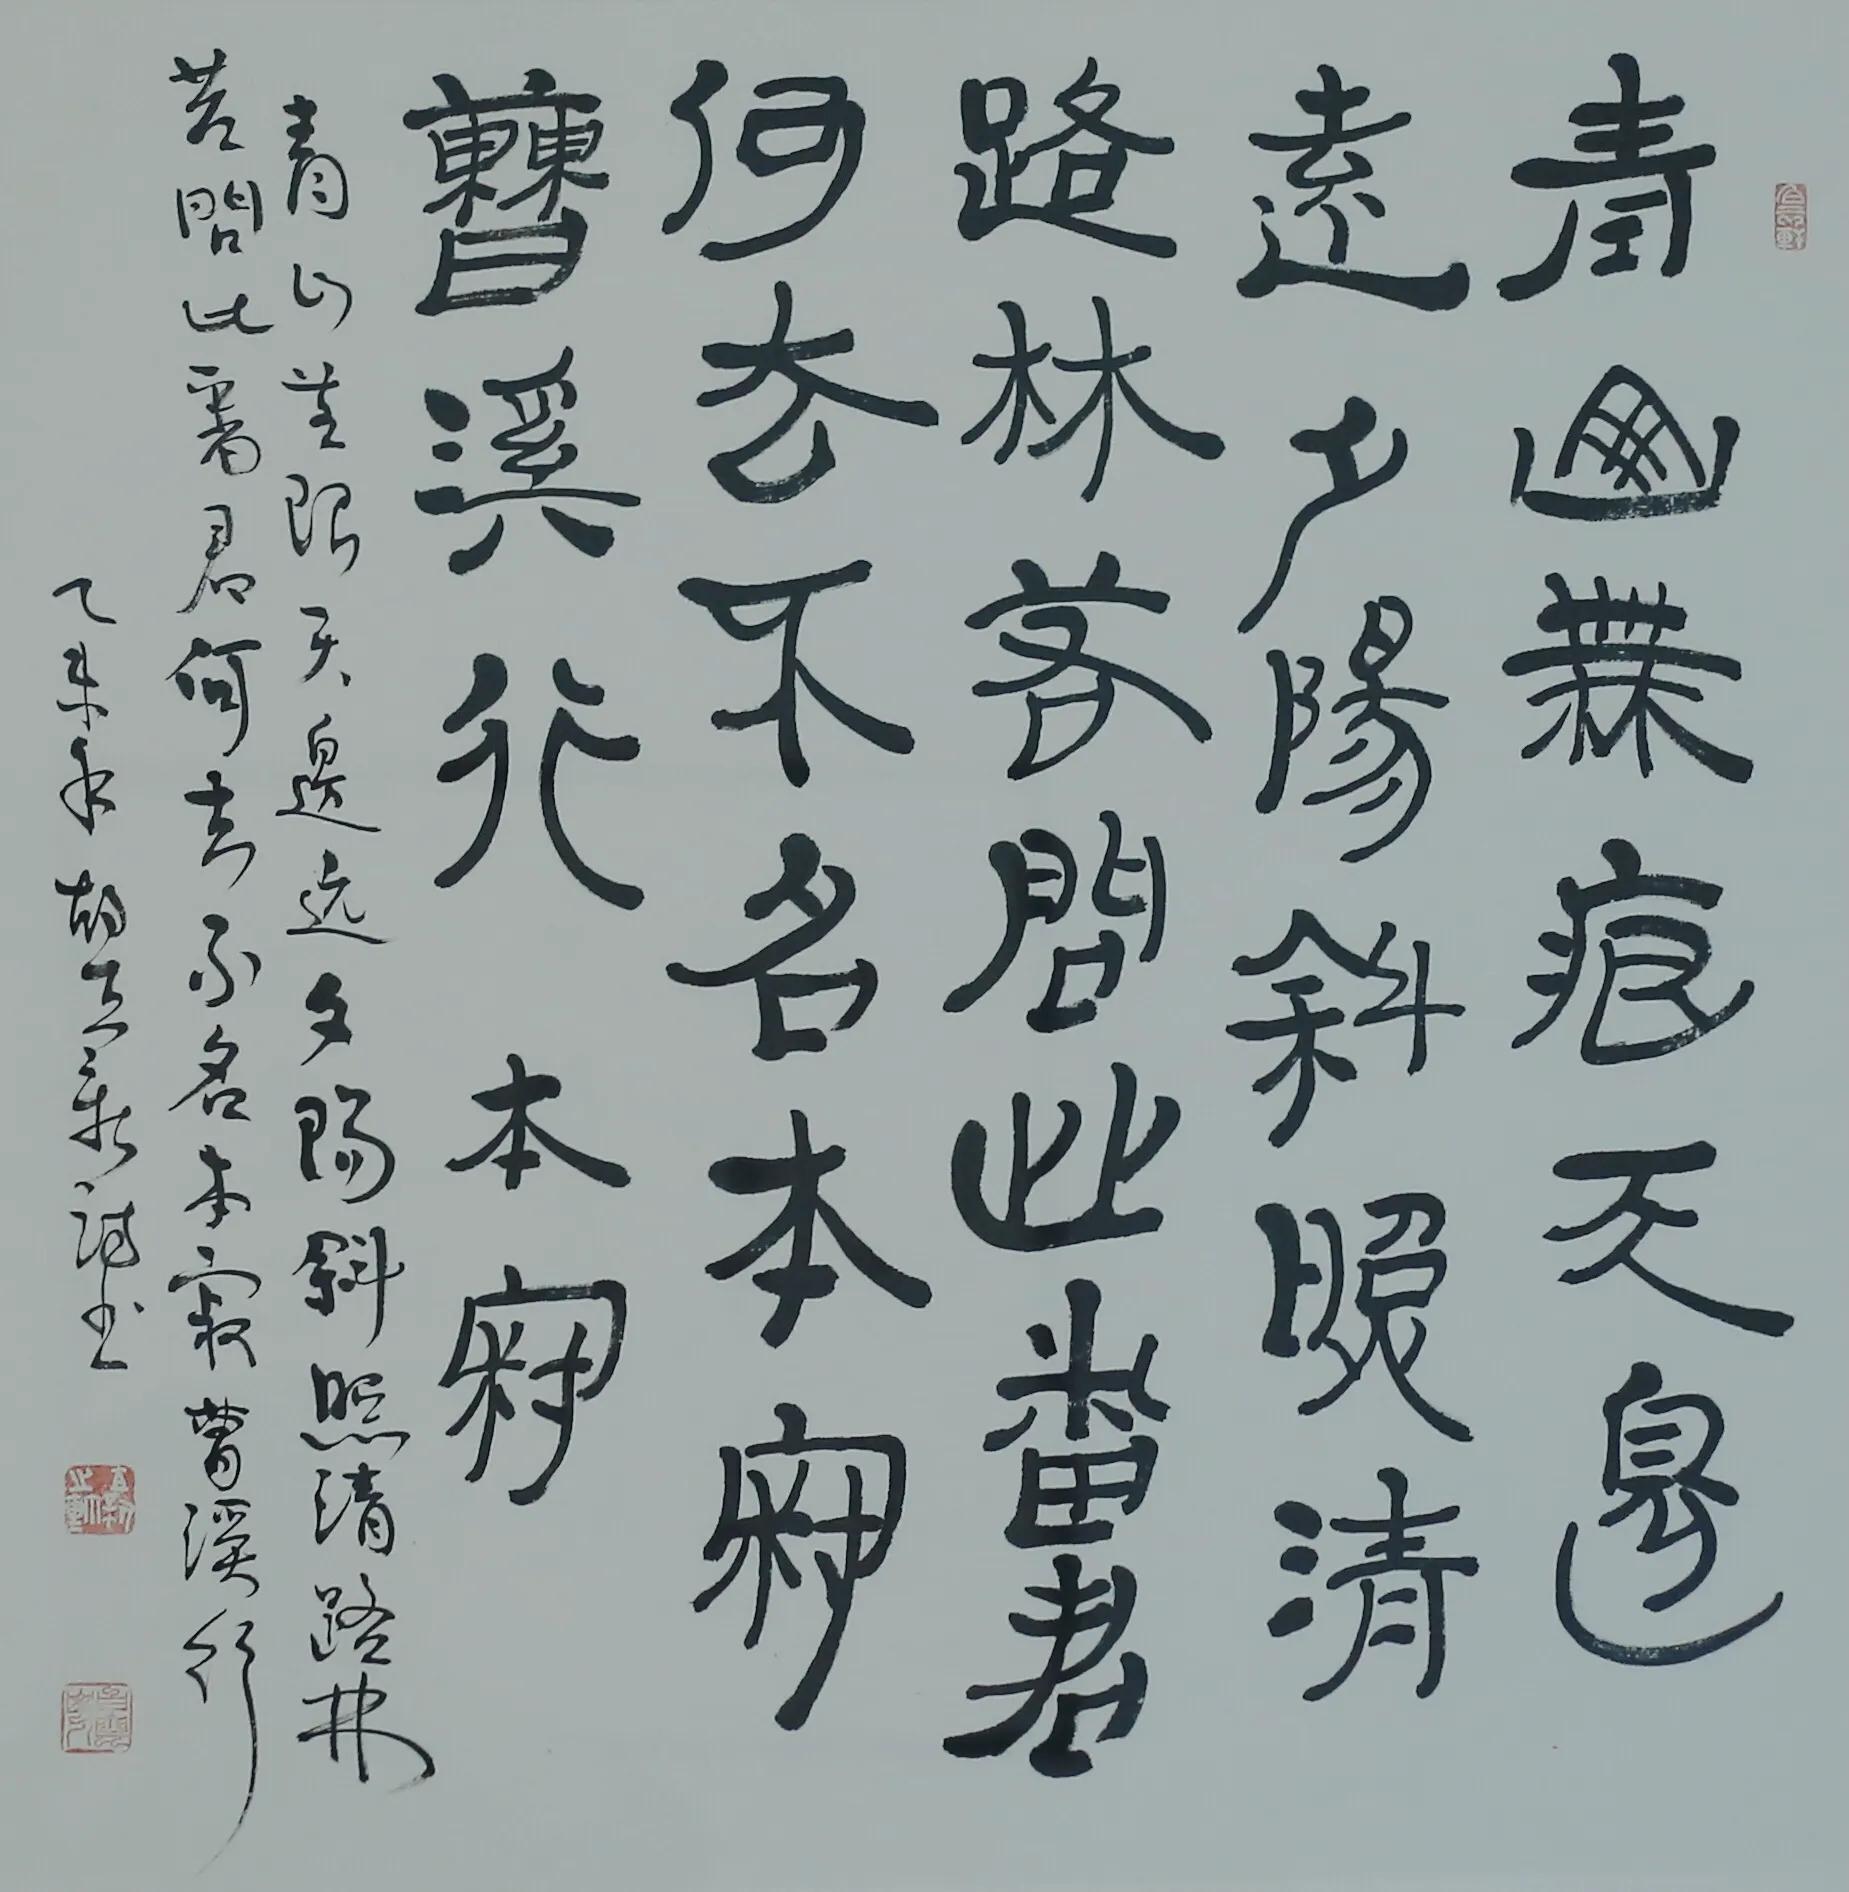 青山無痕天邊
遠夕陽斜照清
路林若問此番君
何去不名本寂
曹溪行 本寂
青山無限天邊遠夕陽斜照清路林
若問此番君何去不名本寂曹溪行
乙未年